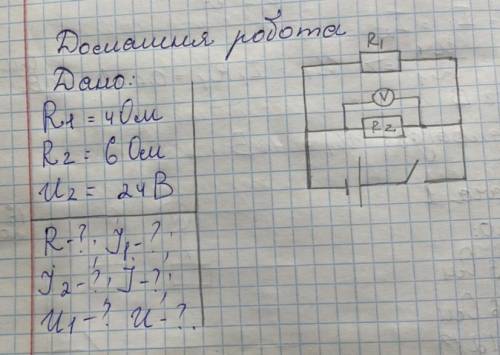 Домашня робота
Дано:
R1 = 4 Ом
R2 = 6 Ом
U2 = 24 В
R-? J1-?
J2-? J-?
U1-? U-?
R1
V
R2